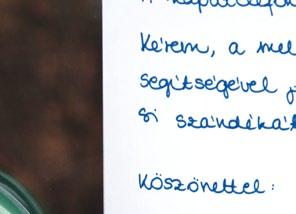 Kérem, a mel
segítségével
si szándéká
Köszönettel: